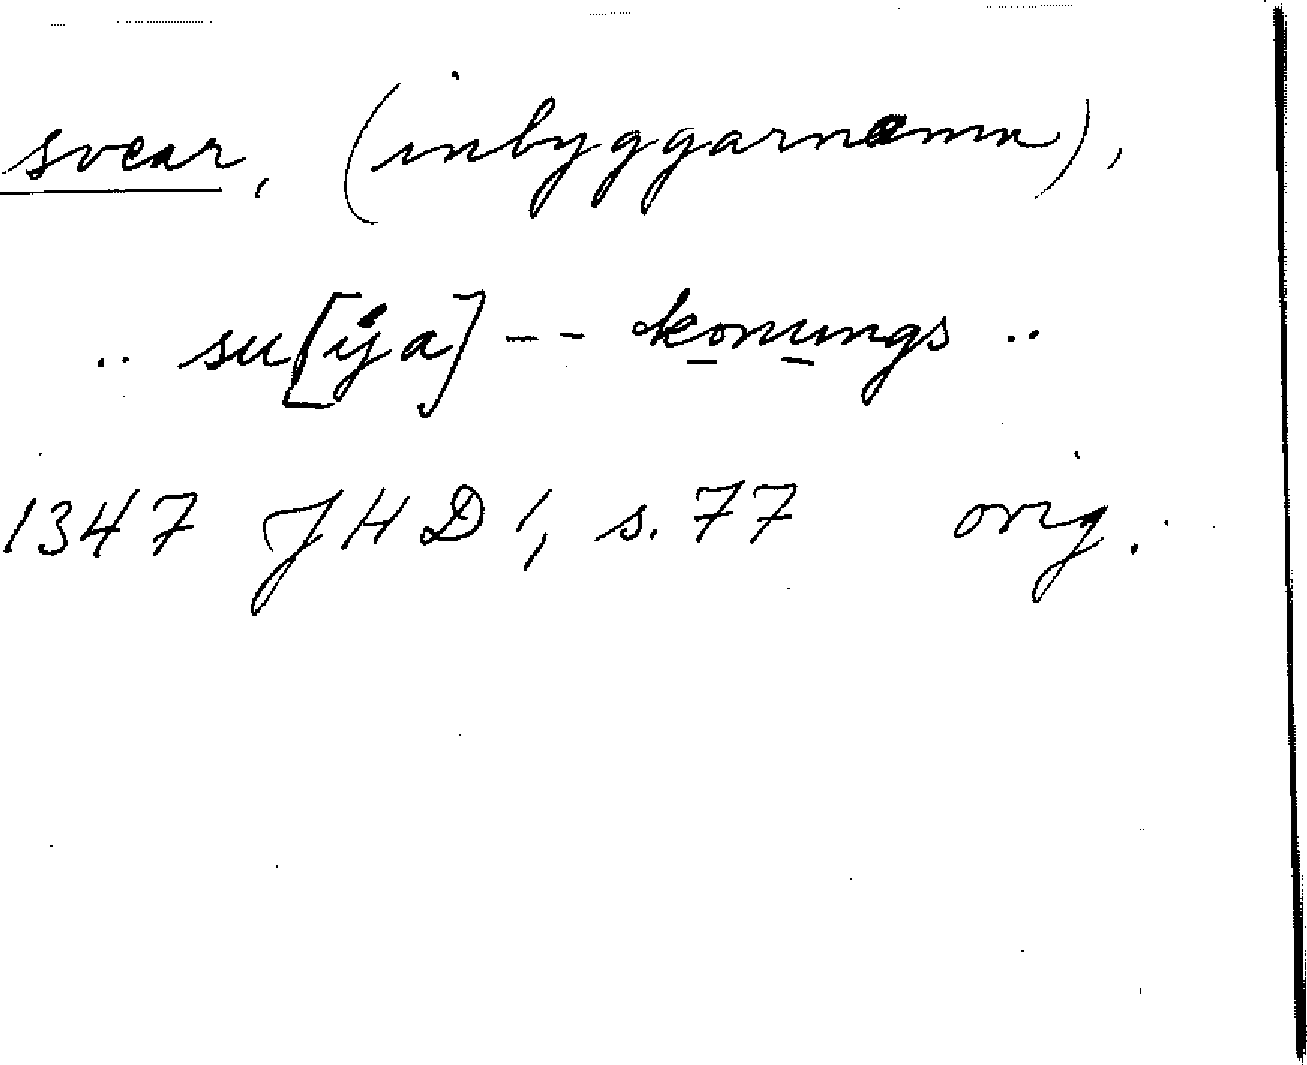 svear, (inbyggarnamn),
.. su[ija] -- konungs ..
1347 JHD 1, s. 77 orig.